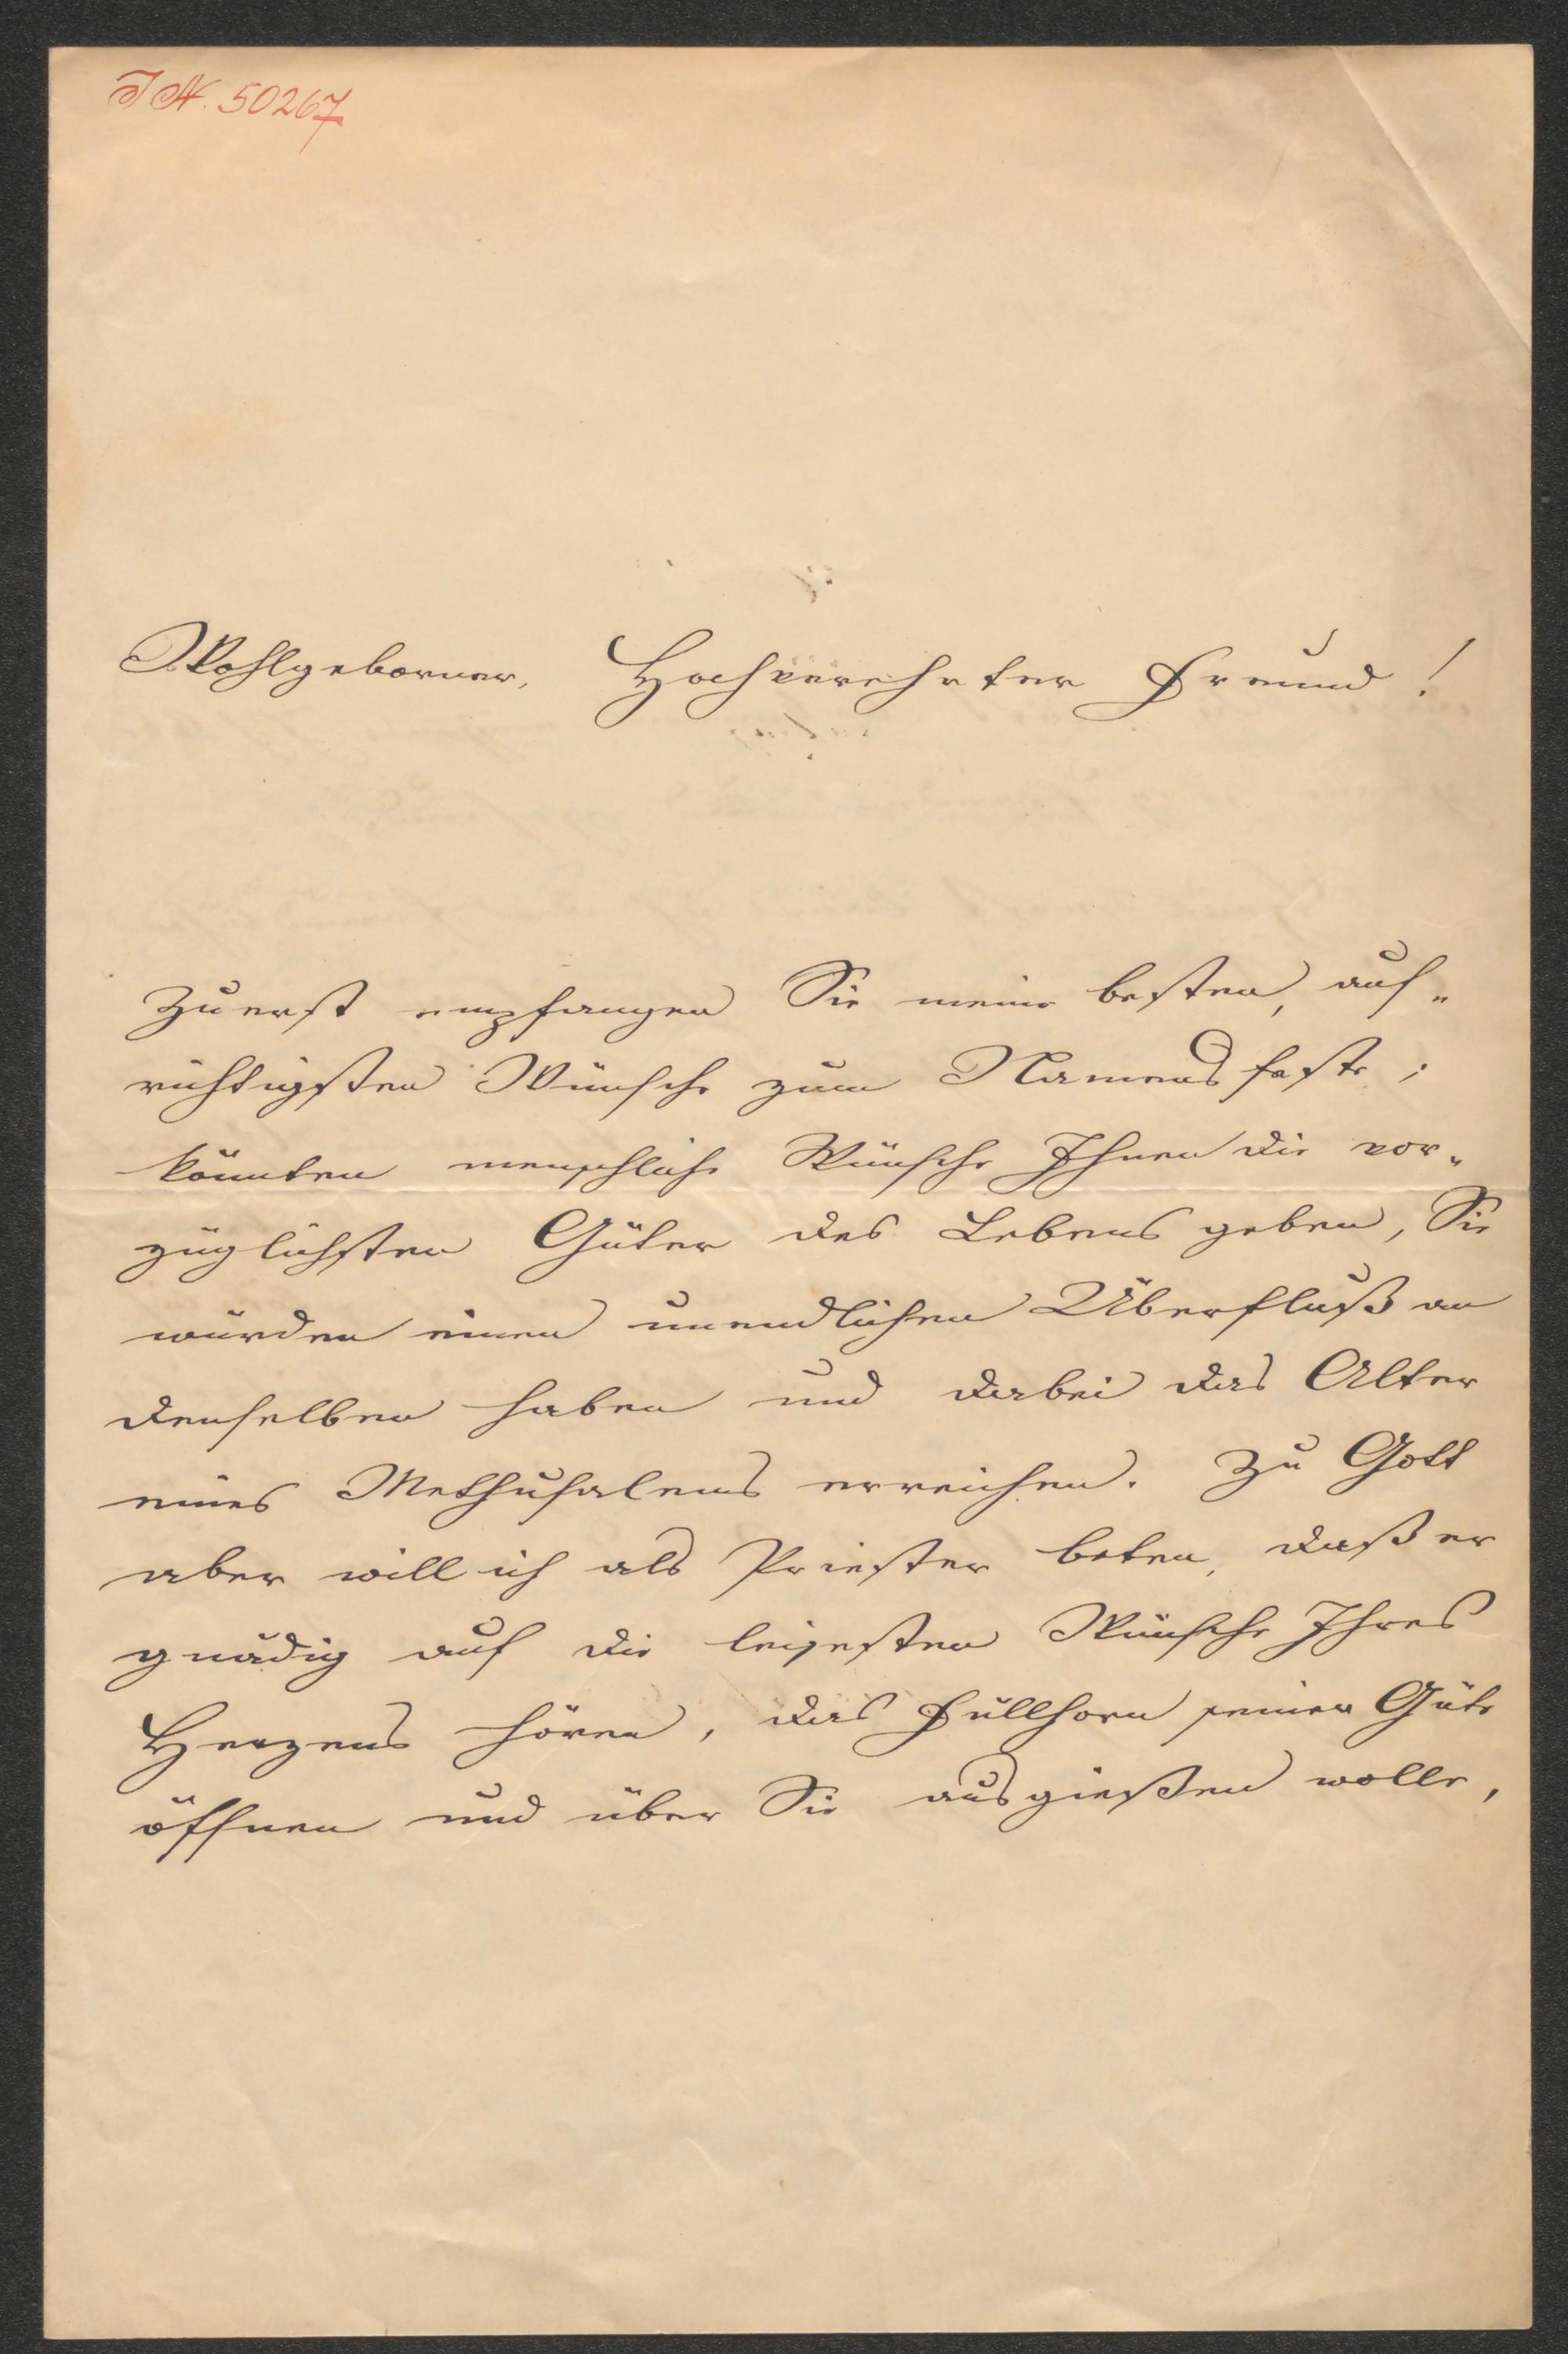 I.N. 50267
Wohlgeborner, Hochverehrter Freund!
Zuerst empfangen Sie meine besten, auf-
richtigsten Wünsche zum Namensfeste;
könnten menschliche Wünsche Ihnen die vor-
züglichsten Güter des Lebens geben, Sie
würden einen unendlichen Überfluß an
denselben haben und dabei das Alter
eines Methusalems erreichen. Zu Gott
aber will ich als Priester beten, daß er
gnädig auf die leisesten Wünsche Ihres
Herzens hören, das Füllhorn seiner Güte
öffnen und über Sie ausgießen wolle,